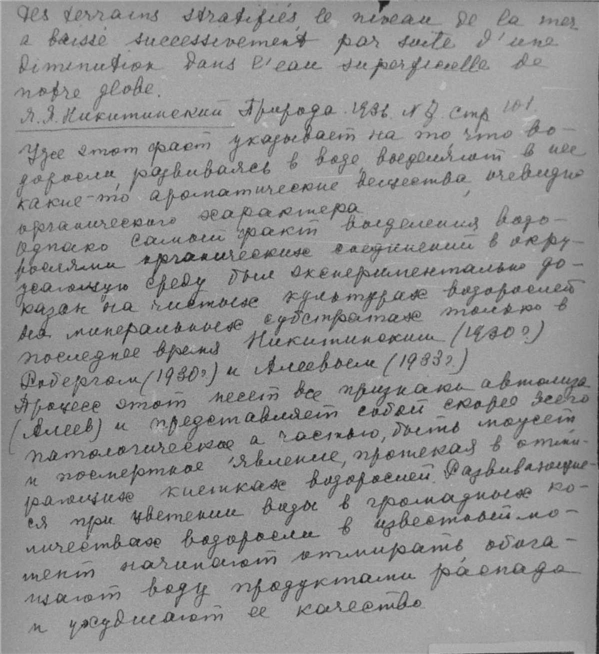 des terrains stratifiés, le niveau de la mer
a baissé successivement par suite d'une
diminution dans l'eau superficielle de
notre globe.
Я.Я. Никитинский Природа 1938 № стр 101
Уже этот факт указывает на то что во-
доросли, развиваясь в воде выделяют в нее
какие-то ароматические вещества, очевидно
органического характера
Однако самый факт выделения водо-
рослями органических соединений в окру-
жающую среду был экспериментально до-
казан на чистых культурах водорослей
на минеральных субстратах только в
последнее время Никитинским (1930г)
Робергом (1930г) и Алеевым (1933г)
Процесс этот несет все признаки автолиза
(Алеев) и представляет собой скорее всего
патологическое а частью, быть может
и посмертное явление, протекая в отми-
рающих клетках водорослей. Развивающие-
ся при цветении воды в громадных ко-
личествах водоросли в известный мо-
мент начинают отмирать обога-
щают воду продуктами распада
и ухудшают ее качество